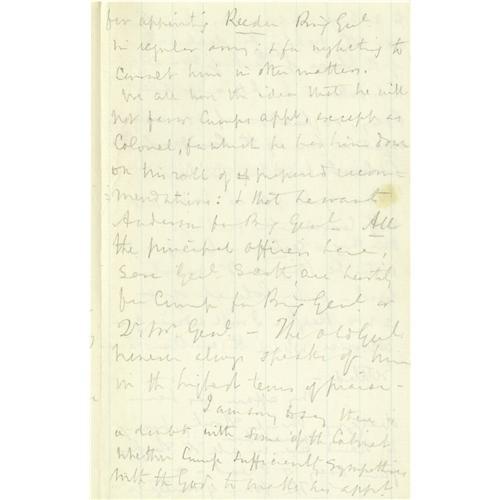 for appointing Reeder Brig Genl
in regular army: & for neglecting to
consult him in other matters.
We all have the idea that he will
not favor Cump's appt, except as
Colonel, for which he has him down
on his roll of prepared recom-
mendations: & that he wants
Anderson for Brig Genl. All
the principal officers here,
save Genl Scott, are heartily
for Cump for Brig Genl or
Qr Mr Genl — The old Genl
however always speaks of him
in the highest terms of praise —
I am sorry to say there is
a doubt with some of the Cabinet
whether Cump sufficiently sympathises
with the Govt to make his appt